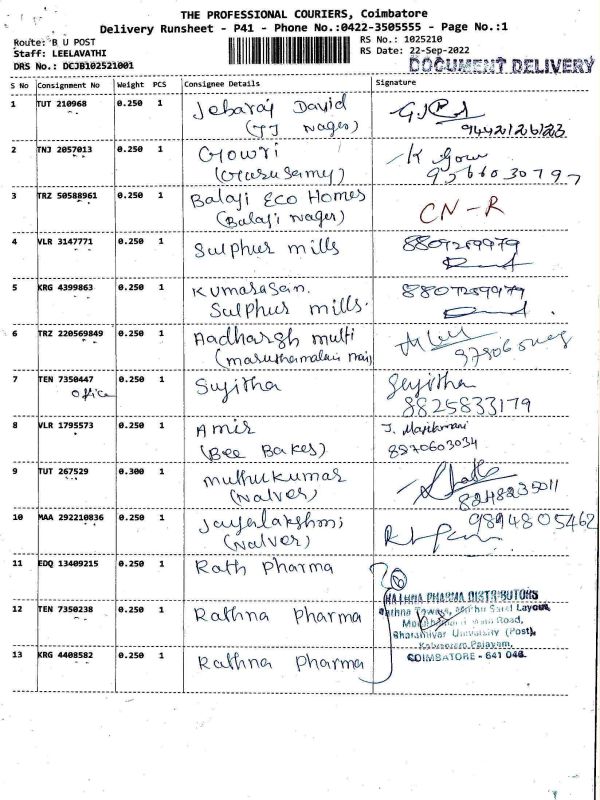 THE PROFESSIONAL COURIERS, Coimbatore
Delivery Runsheet - P41 - Phone No.:0422-3505555 - Page No.:1
Route: B U POST
Staff: LEELAVATHI
DRS No.: DCJB102521001
RS No.: 1025210
RS Date: 22-Sep-2022
DOCUMENT DELIVERY
S No Consignment No Weight PCS Consignee Details Signature
1 TUT 210968 0.250 1 Jebaraj David
(TJ Nager)
9442126123
2 TNJ 2057013 0.250 1 Gowri K Gow
(Gurusamy) 9566030797
3 TRZ 50588961 0.250 1 Balaji Eco Homes
(Balaji Nager) CN-R
4 VLR 3147771 0.250 1 Sulphur mills 8807259979
5 KRG 4399863 0.250 1 Kumarasan. 8807259979
Sulphur mills.
6 TRZ 220569849 0.250 1 Aadhargh multi
(maruthamalai main)
7 TEN 7350447 0.250 1 Sujitha Sujitha
Office 8825833179
8 VLR 1795573 0.250 1 Amir J. Manikmani
(Bee Bakes) 8870603034
9 TUT 267529 0.300 1 muthukumar
(Nalver) 8248235011
10 MAA 292210836 0.250 1 Jayalakshmi 9894805462
(Nalver)
11 EDQ 13409215 0.250 1 Rath Pharma
12 TEN 7350238 0.250 1 Rathna Pharma
13 KRG 4408582 0.250 1 Rathna Pharma
RATHNA PHARMA DISTRIBUTORS
Rathna Towers, Layout,
Main Road,
Bharathiyar University (Post),
Kalveeram Palayam,
COIMBATORE - 641 046.